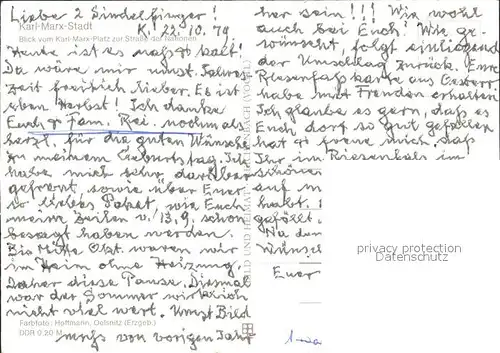 Liebe 2 Sindelfinger!
Karl-Marx-Stadt
K. 22.10.79
Blick vom Karl-Marx-Platz zur Straße der Nationen
Heute ist es naß & kalt!
Da wäre mir uns. Jahres
zeit freilich lieber. Es ist
eben Herbst! Ich danke
Euch & Fam. Rei. nochmals
herzl. für die guten Wünsche
zu meinem Geburtstag. Ich
habe mich sehr darüber
gefreut, sowie über Euer
so liebes Paket, wie Euch
meine Zeilen v. 13.9. schon
besagt haben werden.
Bis Mitte Okt. waren wir
im Heim ohne Heizung.
Daher diese Pause. Diesmal
war der Sommer wirklich
nicht viel wert. Kunst Bild
Farbfoto: Hoffmann, Oelsnitz (Erzgeb.)
DDR 0,20 M
muss von vorigen Jahr
BILD UND HEIMAT REICHENBACH (VOGTL)
her sein!!! Wie wohl
auch bei Euch! Wie ge-
wünscht, folgt einliegend
der Umschlag zurück. Eure
Riesenfaßkarte aus Oesterr.
habe mit Freuden erhalten
Ich glaube es gern, daß es
Euch dort so gut gefallen
hat & freue mich, daß
Ihr im Riesenfaß im
schönen
auf
habt.
gefällt.
Na dan
Wünsch
Euer
privacy protection
Datenschutz